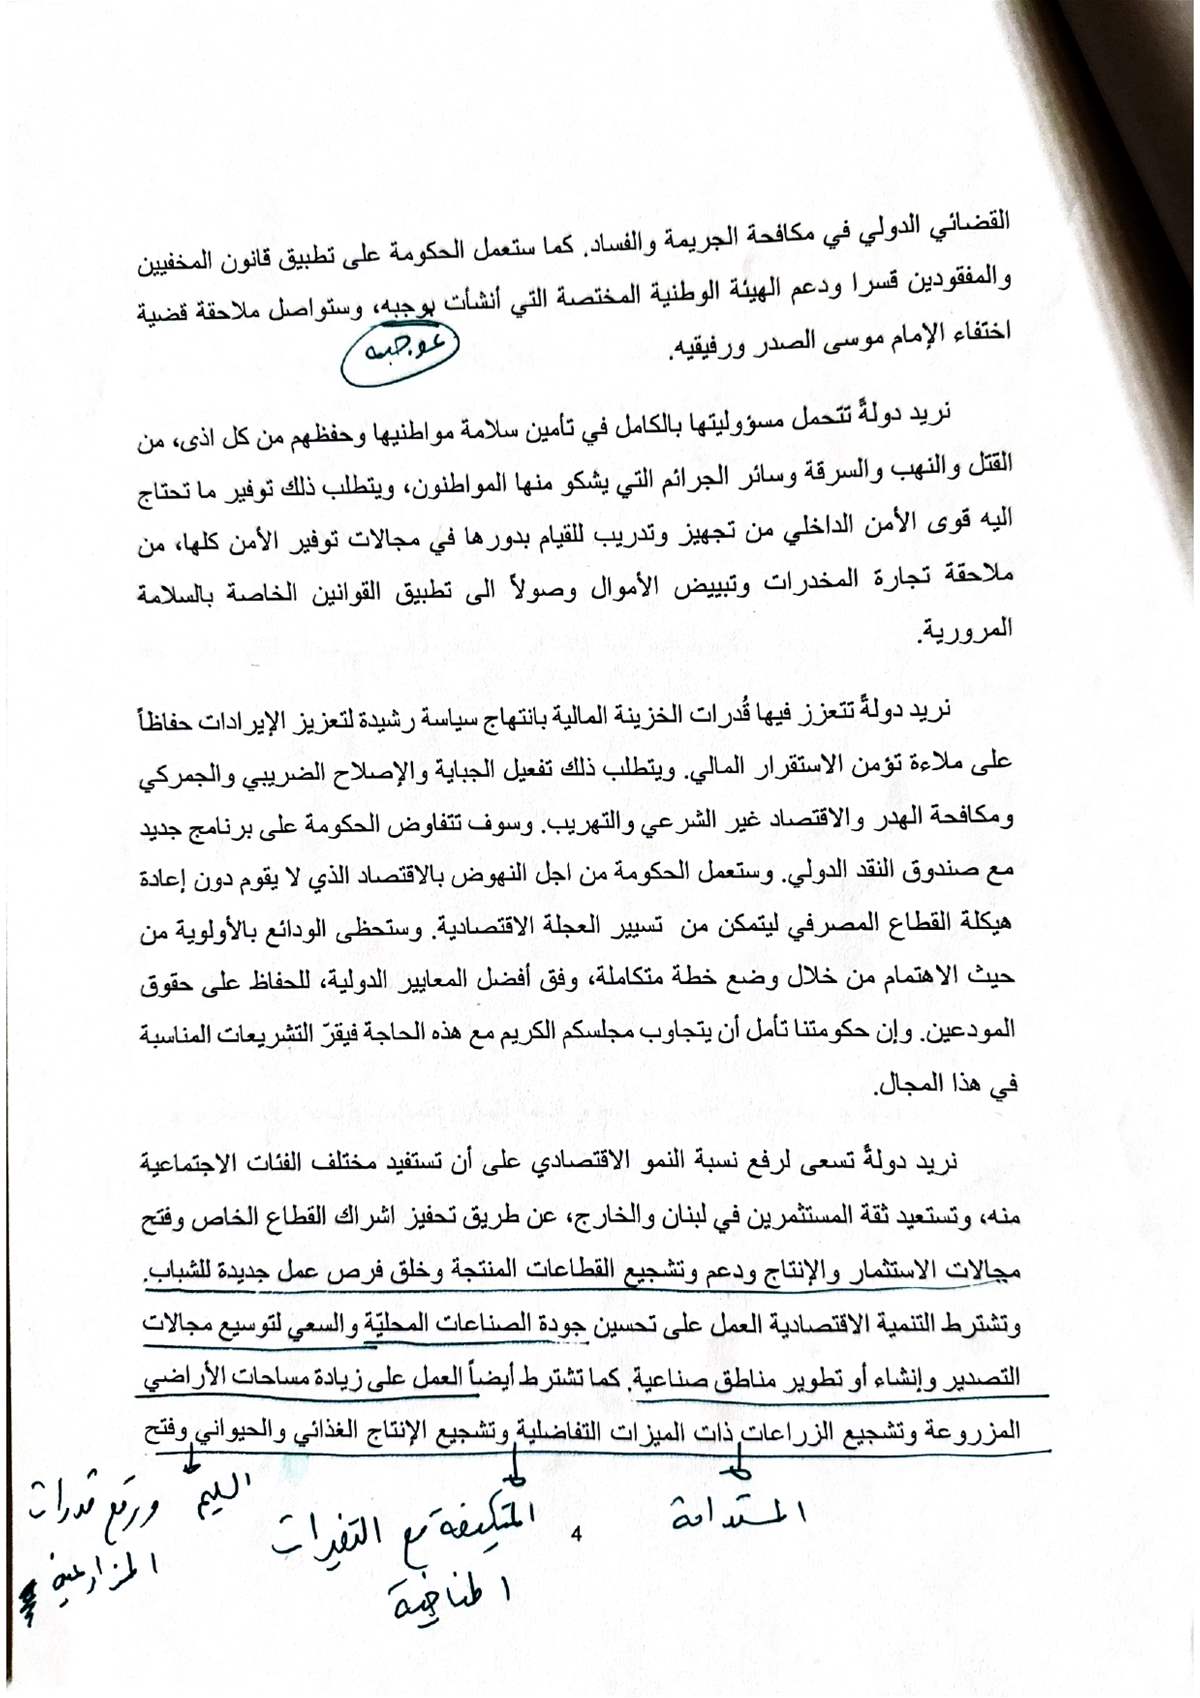 القضائي الدولي في مكافحة الجريمة والفساد. كما ستعمل الحكومة على تطبيق قانون المخفيين
والمفقودين قسرا ودعم الهيئة الوطنية المختصة التي أنشأت بوجبه، وستواصل ملاحقة قضية
اختفاء الإمام موسى الصدر ورفيقيه.
بموجبه
نريد دولةً تتحمل مسؤوليتها بالكامل في تأمين سلامة مواطنيها وحفظهم من كل اذى، من
القتل والنهب والسرقة وسائر الجرائم التي يشكو منها المواطنون، ويتطلب ذلك توفير ما تحتاج
اليه قوى الأمن الداخلي من تجهيز وتدريب للقيام بدورها في مجالات توفير الأمن كلها، من
ملاحقة تجارة المخدرات وتبييض الأموال وصولاً الى تطبيق القوانين الخاصة بالسلامة
المرورية.
نريد دولةً تتعزز فيها قُدرات الخزينة المالية بانتهاج سياسة رشيدة لتعزيز الإيرادات حفاظاً
على ملاءة تؤمن الاستقرار المالي. ويتطلب ذلك تفعيل الجباية والإصلاح الضريبي والجمركي
ومكافحة الهدر والاقتصاد غير الشرعي والتهريب. وسوف تتفاوض الحكومة على برنامج جديد
مع صندوق النقد الدولي. وستعمل الحكومة من اجل النهوض بالاقتصاد الذي لا يقوم دون إعادة
هيكلة القطاع المصرفي ليتمكن من تسيير العجلة الاقتصادية. وستحظى الودائع بالأولوية من
حيث الاهتمام من خلال وضع خطة متكاملة، وفق أفضل المعايير الدولية، للحفاظ على حقوق
المودعين. وإن حكومتنا تأمل أن يتجاوب مجلسكم الكريم مع هذه الحاجة فيقرّ التشريعات المناسبة
في هذا المجال.
نريد دولةً تسعى لرفع نسبة النمو الاقتصادي على أن تستفيد مختلف الفئات الاجتماعية
منه، وتستعيد ثقة المستثمرين في لبنان والخارج، عن طريق تحفيز اشراك القطاع الخاص وفتح
مجالات الاستثمار والإنتاج ودعم وتشجيع القطاعات المنتجة وخلق فرص عمل جديدة للشباب.
وتشترط التنمية الاقتصادية العمل على تحسين جودة الصناعات المحليّة والسعي لتوسيع مجالات
التصدير وإنشاء أو تطوير مناطق صناعية. كما تشترط أيضاً العمل على زيادة مساحات الأراضي
المزروعة وتشجيع الزراعات ذات الميزات التفاضلية وتشجيع الإنتاج الغذائي والحيواني وفتح
المستدامة
المتكيفة مع التغيرات
المناخية
السليم
ورفع قدرات
المزارعين
4